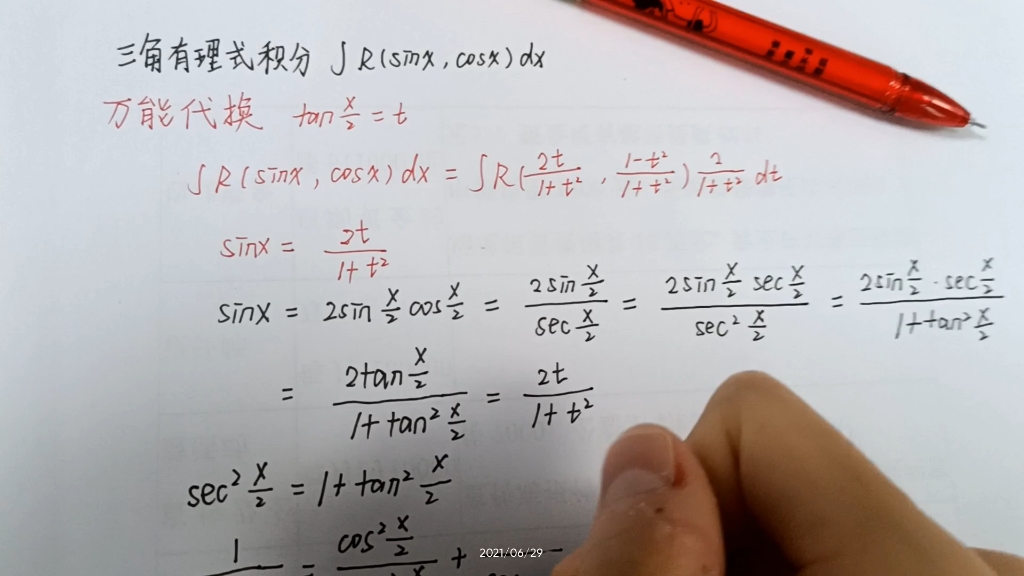 三角有理式积分 ∫R(sinx, cosx)dx
万能代换 tan x/2 = t
∫R(sinx, cosx)dx = ∫R(2t/(1+t²), (1-t²)/(1+t²)) 2/(1+t²) dt
sinx = 2t/(1+t²)
sinx = 2sin x/2 cos x/2 = 2sin x/2 / sec x/2 = 2sin x/2 sec x/2 / sec² x/2 = 2sin x/2 · sec x/2 / (1+tan² x/2)
= 2tan x/2 / (1+tan² x/2) = 2t/(1+t²)
sec² x/2 = 1+tan² x/2
1 = cos² x/2 +
2021/06/29